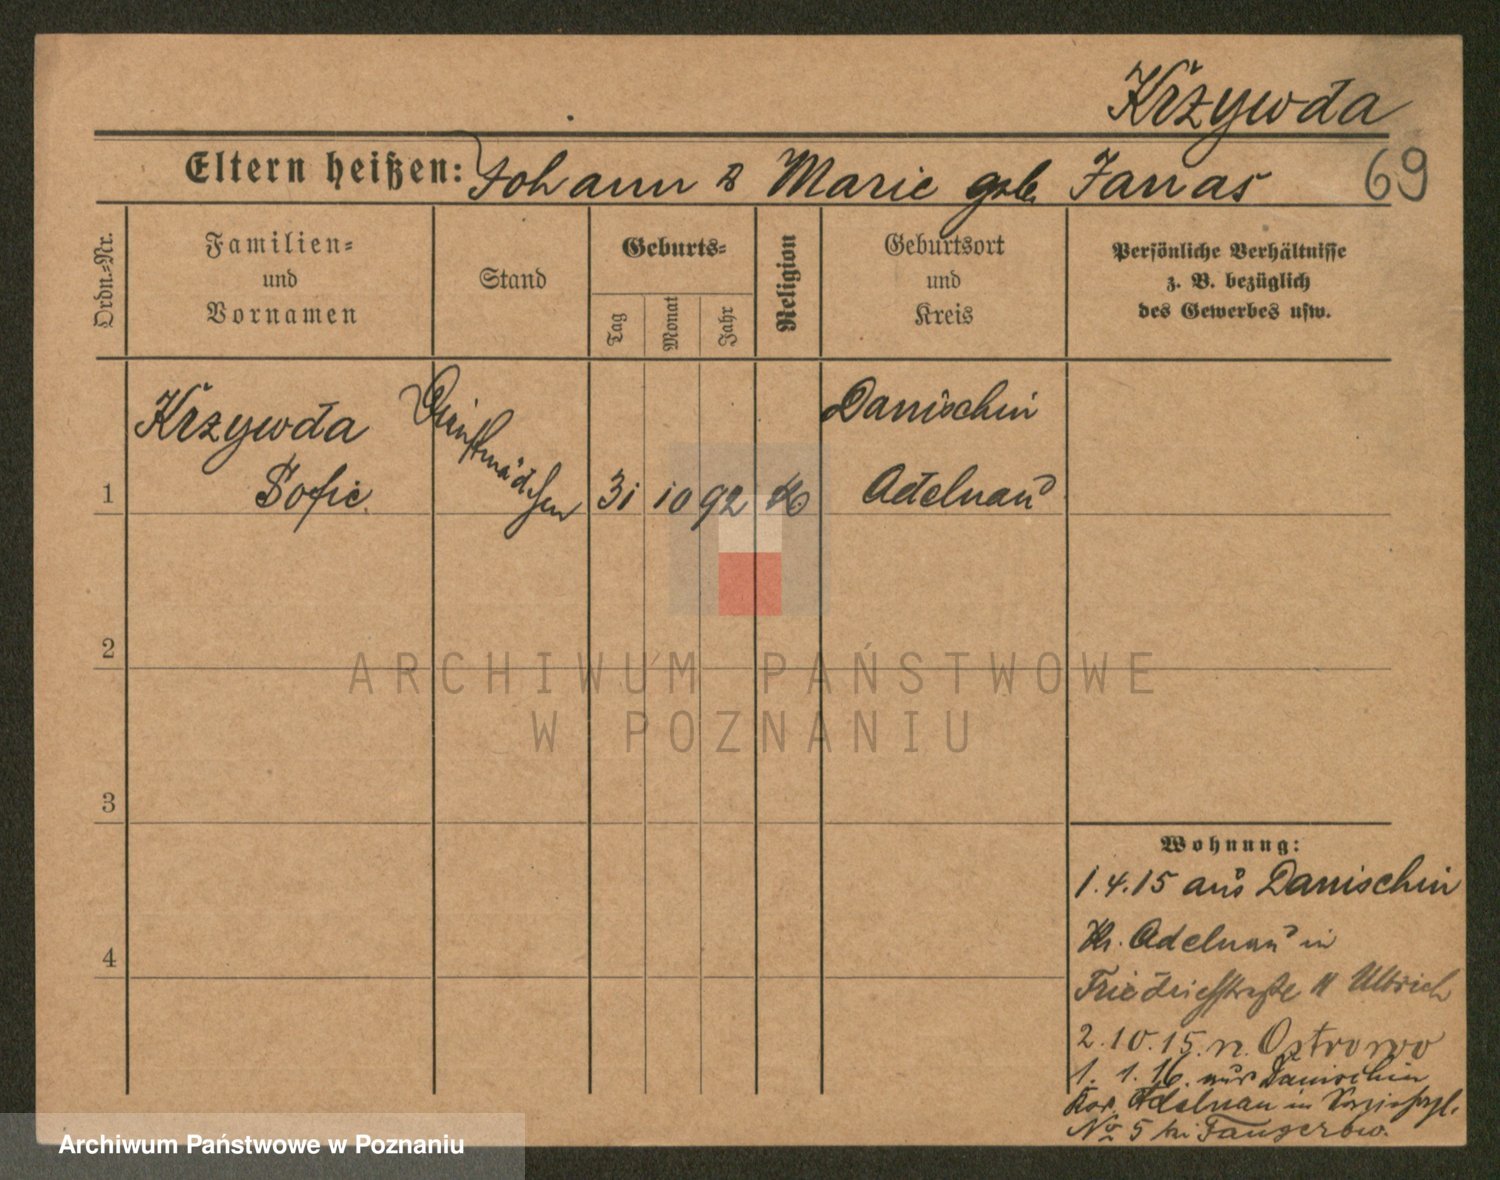 Krzywda
69
Eltern heißen: Johann & Marie geb. Janas
Ordn.-Nr.
Familien-
und
Vornamen
Stand
Geburts-
Tag
Monat
Jahr
Religion
Geburtsort
und
Kreis
Persönliche Verhältnisse
z. B. bezüglich
des Gewerbes usw.
Krzywda
Dienstmädchen
Danischin
1
Sofie
31
10
92
K
Adelnau
2
ARCHIWUM PAŃSTWOWE
W POZNANIU
3
Wohnung:
1.4.15 aus Danischin
Kr. Adelnau in
4
Friedrichstraße 11 Ullrich
2.10.15. n. Ostrowo
1. 1. 16. aus Danischin
Adelnau in
No 5 bei
Archiwum Państwowe w Poznaniu